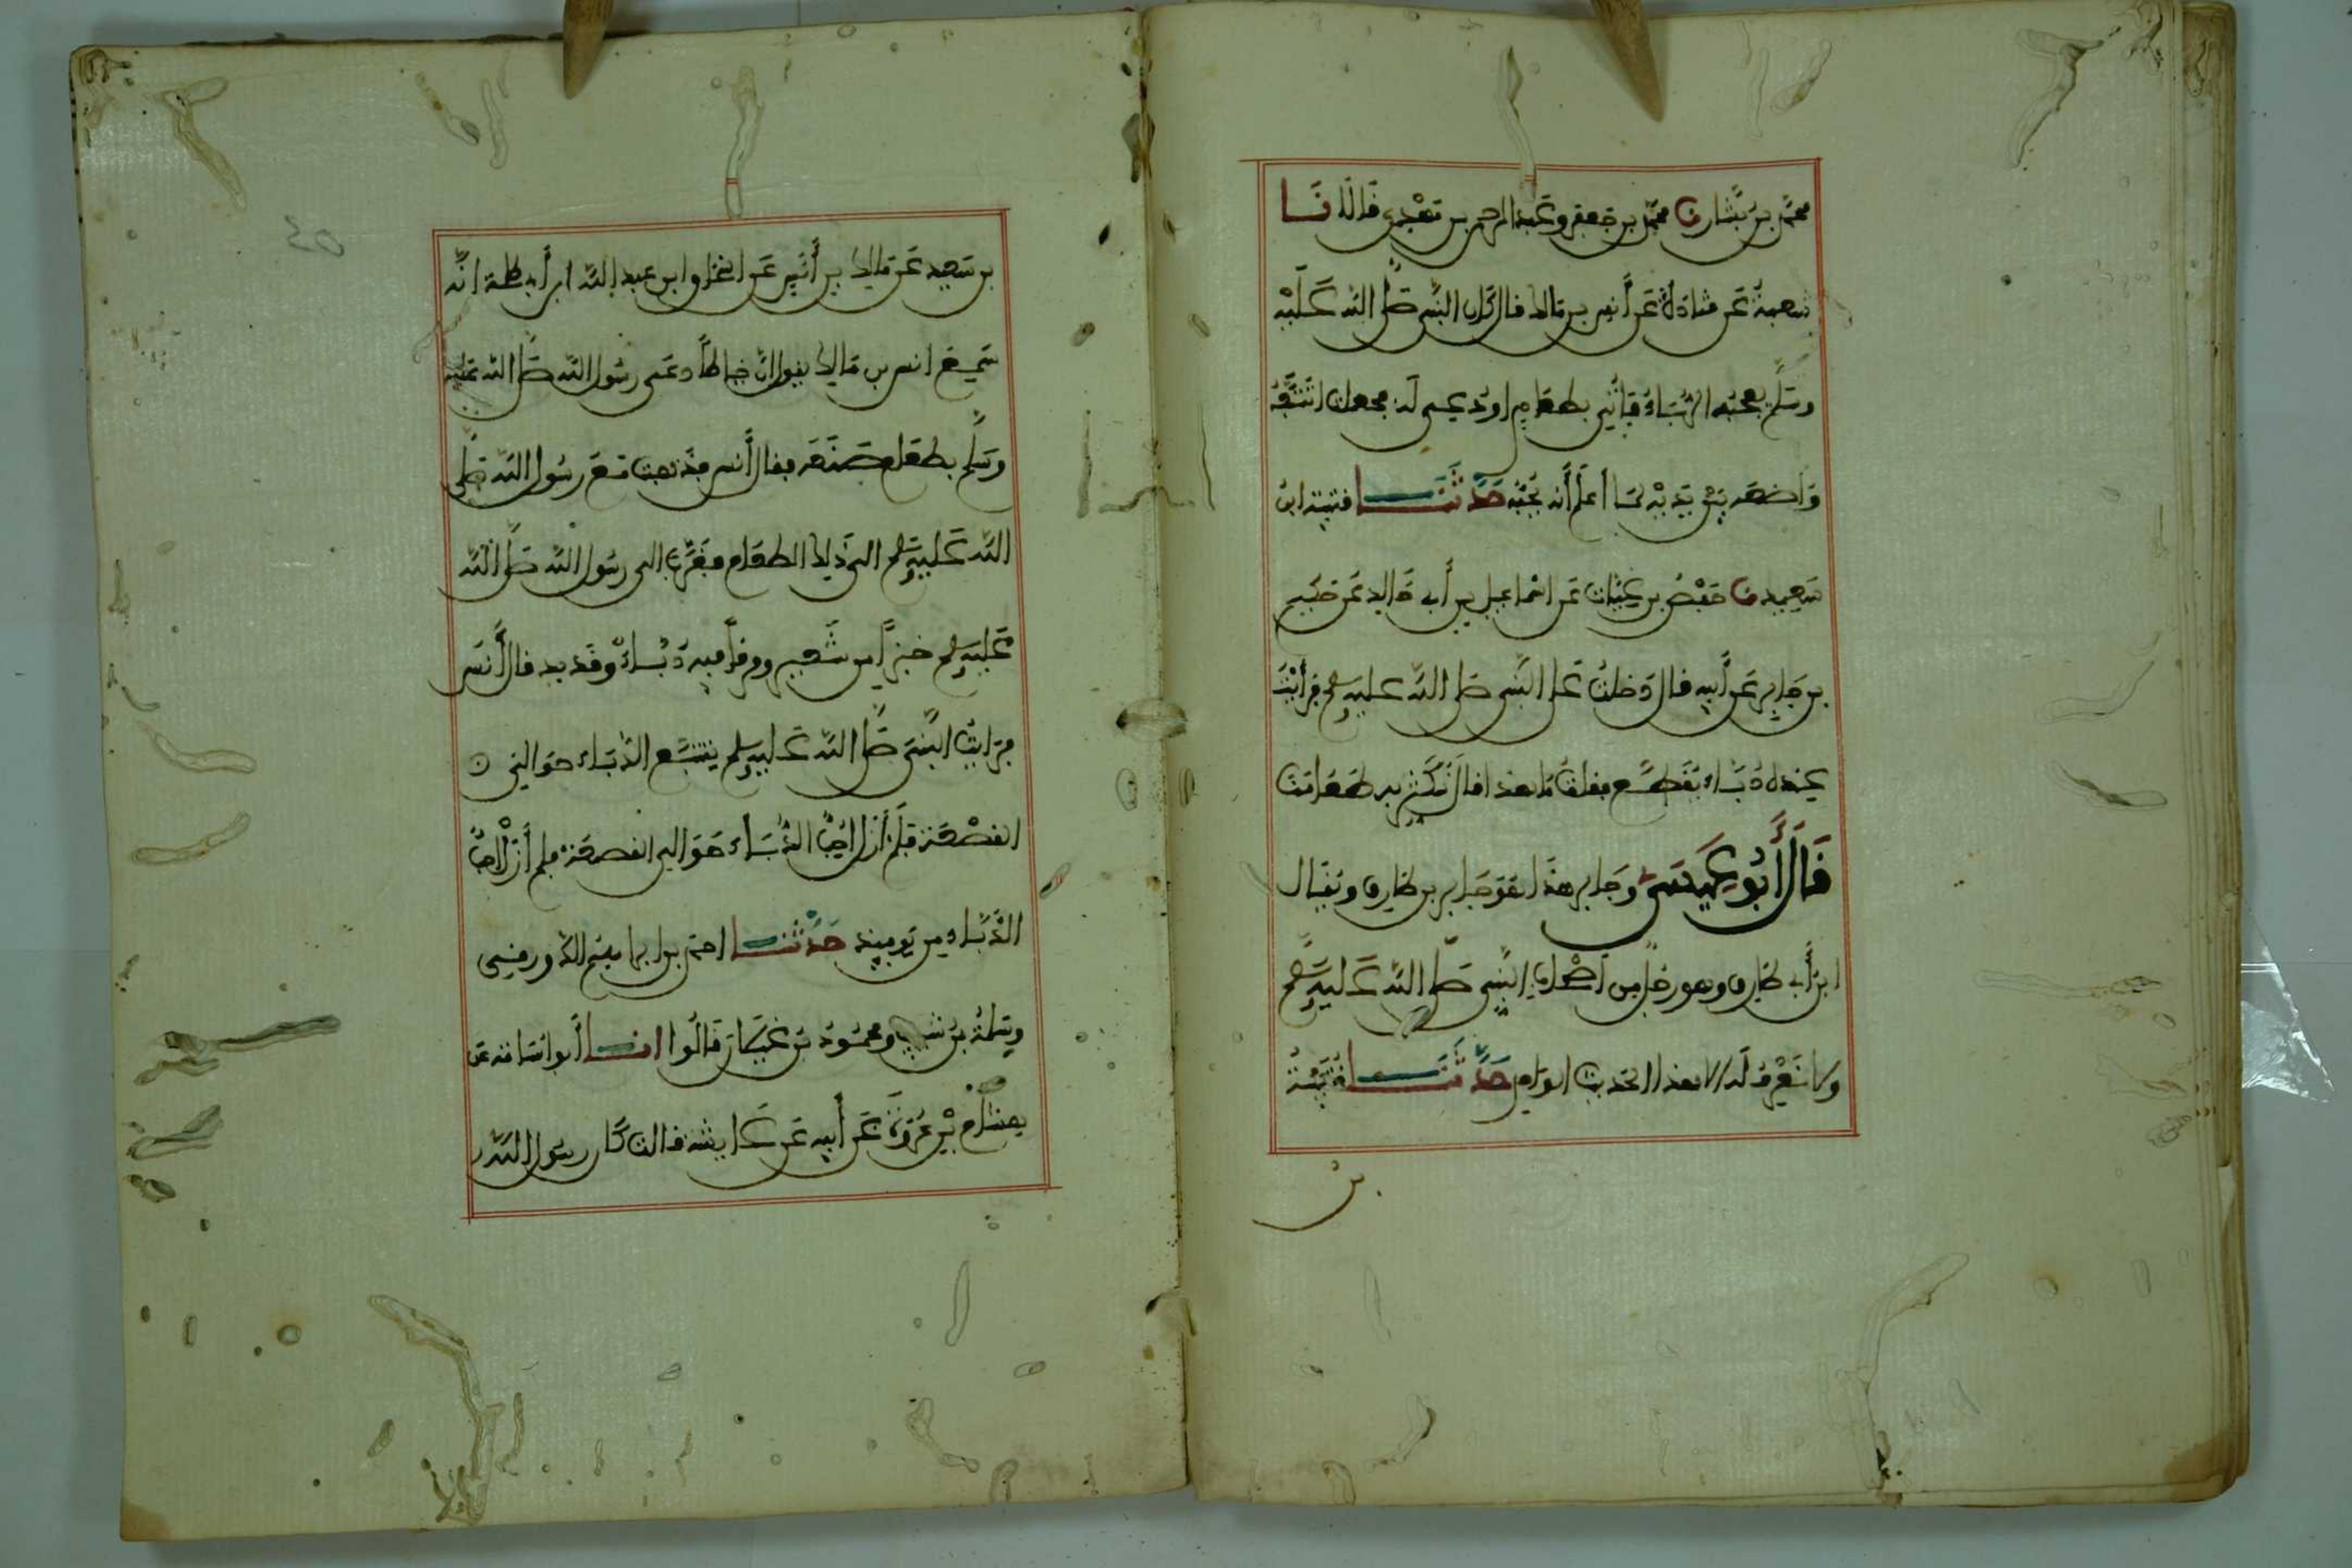 محمد بن بشار نا محمد بن جعفر وعبد الرحمن بن مهدي قالا نا
شعبة عن قتادة عن أنس بن مالك قال كان النبي صلى الله عليه
وسلم يعجبه الدباء فأتي بطعام أو دعي له فجعلت أتتبعه
وأضعه بين يديه لما أعلم أنه يحبه حدثنا قتيبة ابن
سعيد نا حفص بن غياث عن اسماعيل بن أبي خالد عن حكيم
بن جابر عن أبيه قال دخلت على النبي صلى الله عليه وسلم فرأيت
عنده دباء يقطع فقلت ما هذا قال نكثر به طعامنا
قال أبو عيسى وجابر هذا هو جابر بن طارق ويقال
ابن أبي طارق وهو رجل من أصحاب النبي صلى الله عليه وسلم
ولا نعرف له الا هذا الحديث الواحد حدثنا قتيبة
بن
بن سعيد عن مالك بن أنس عن اسحاق ابن عبد الله ابن أبي طلحة انه
سمع انس بن مالك يقول ان خياطا دعى رسول الله صلى الله عليه
وسلم بطعام صنعه فقال أنس فذهبت مع رسول الله صلى
الله عليه وسلم الى ذلك الطعام فقرب الى رسول الله صلى الله
عليه وسلم خبزا من شعير ومرقا فيه دباء وقديد قال أنس
فرايت النبي صلى الله عليه وسلم يتتبع الدباء حوالي
القصعة فلم أزل احب الدباء حوالي القصعة فلم أزل احب
الدباء من يوميذ حدثنا احمد بن ابراهيم الدورقي
وسلمة بن شبيب ومحمود بن غيلان قالوا انا أبو اسامة عن
هشام بن عروة عن أبيه عن عايشة قالت كان رسول الله